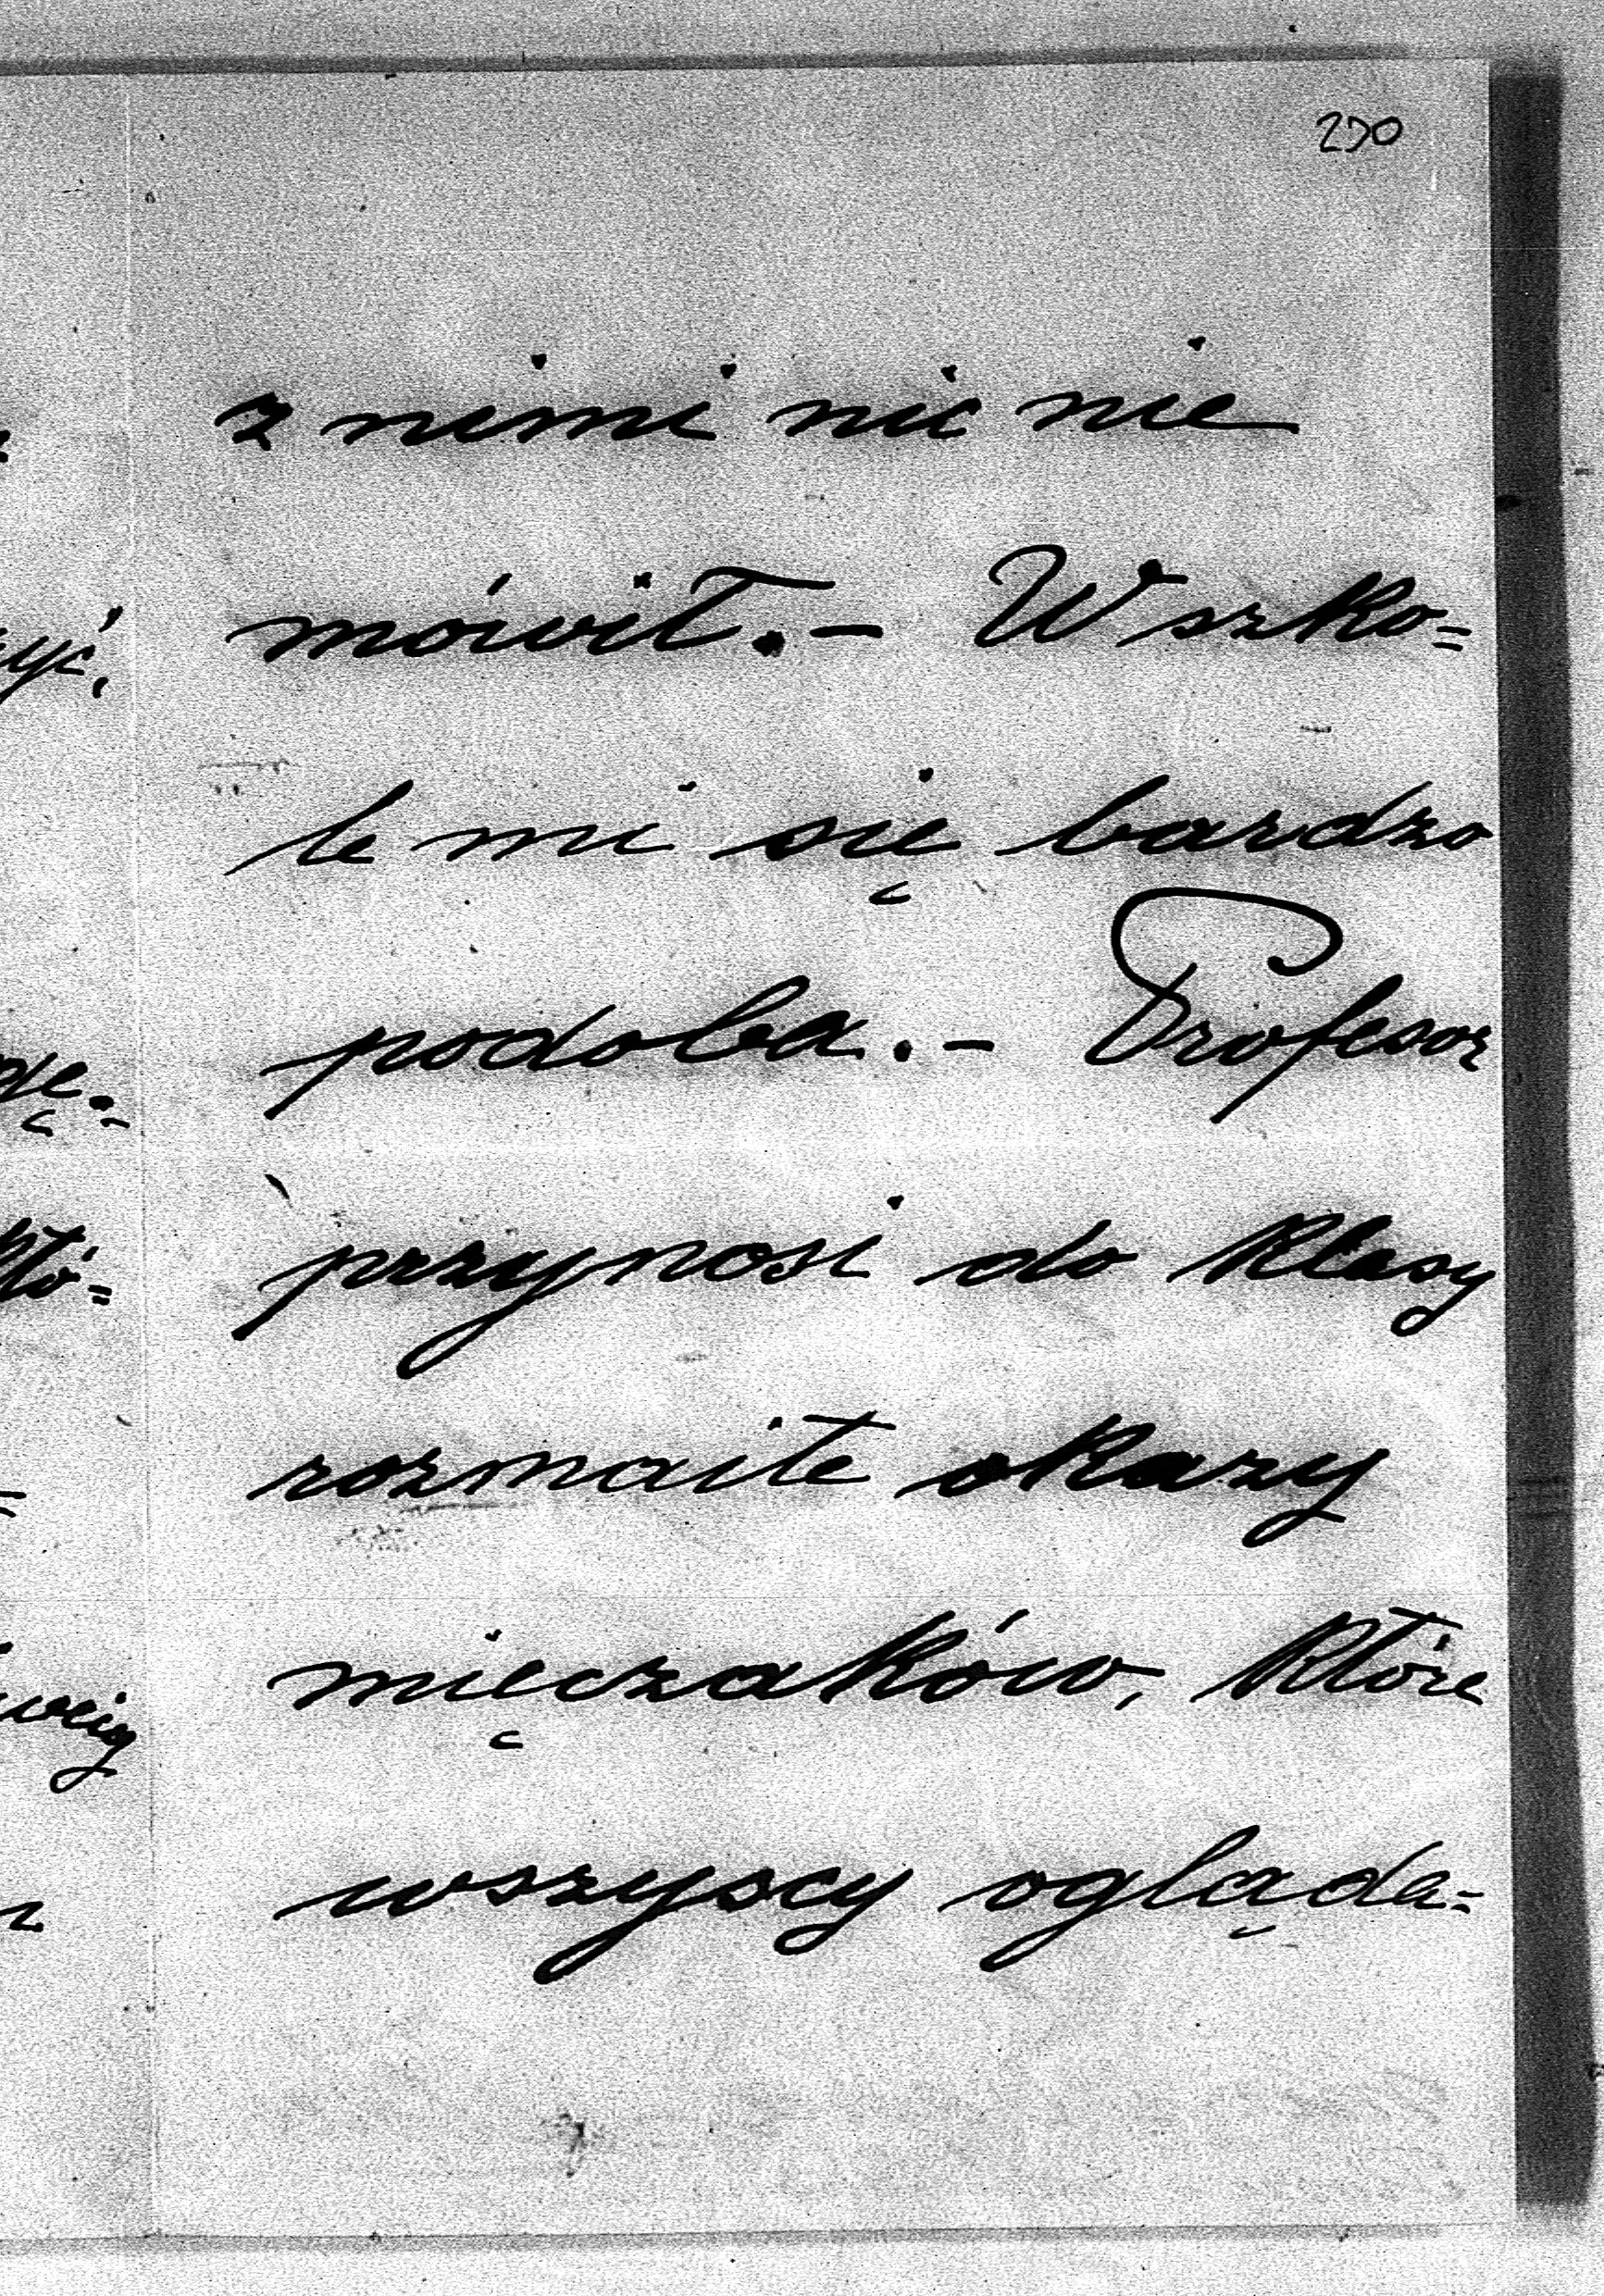 230
z nimi nic nie
mówił.– W szko=
le mi się bardzo
podoba.– Profesor
przynosi do klasy
rozmaite okazy
mięczaków, które
wszyscy ogląda=